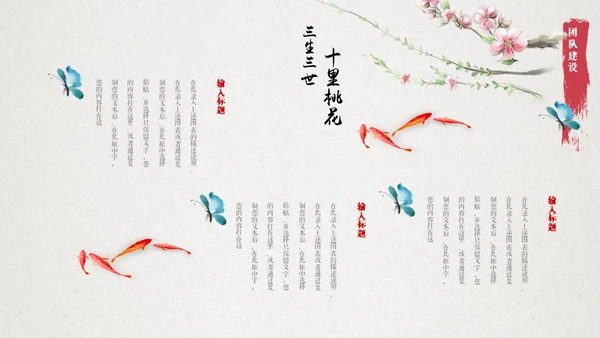 团队建设
十里桃花
三生三世
输入标题
在此录入上述图表的描述说明，
在此录入上述图表或者通过复
制您的文本后，在此框中选择
粘贴，并选择只保留文字，您
的内容打在这里，或者通过复
制您的文本后，在此框中字，
您的内容打在这
输入标题
在此录入上述图表的描述说明，
在此录入上述图表或者通过复
制您的文本后，在此框中选择
粘贴，并选择只保留文字，您
的内容打在这里，或者通过复
制您的文本后，在此框中字，
您的内容打在这
输入标题
在此录入上述图表的描述说明，
在此录入上述图表或者通过复
制您的文本后，在此框中选择
粘贴，并选择只保留文字，您
的内容打在这里，或者通过复
制您的文本后，在此框中字，
您的内容打在这